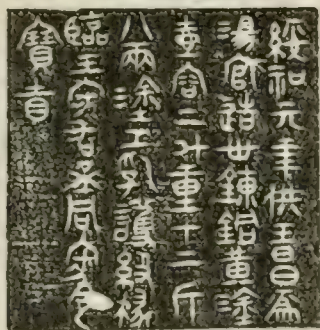 綏和元年供工昌為
湯官造卅鍊銅黃塗
壺容二斗重十二斤
八兩塗工乳護級掾
臨主守右丞同守令
寶省